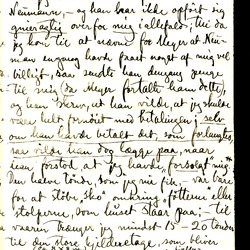 Neumann, – og han bør ikke opført sig
gneragtig overfor mig (ialfald); thi da
jeg kom til at nævne for Meyer at Neu-
mann engang havde faaet noget af mig vel
billigt, saa sendte han dengang penge
til mig (da Meyer fortalte ham dette)
og han skrev, at han vilde, at jeg skulde
være helt fornøiet med betalingen; selv
om han havde betalt det, som forlangtes,
saa vilde han dog lægge paa, naar
han forstod at jeg havde "forsolgt mig".
Den halve tønde, som jeg nu fik var bare
for at støbe "sko" omkring føtterne eller
stolperne, som huset staar paa; – til
vaaren trænger jeg mindst 15 – 20 tønder
til den store kjelderetage, som bliver